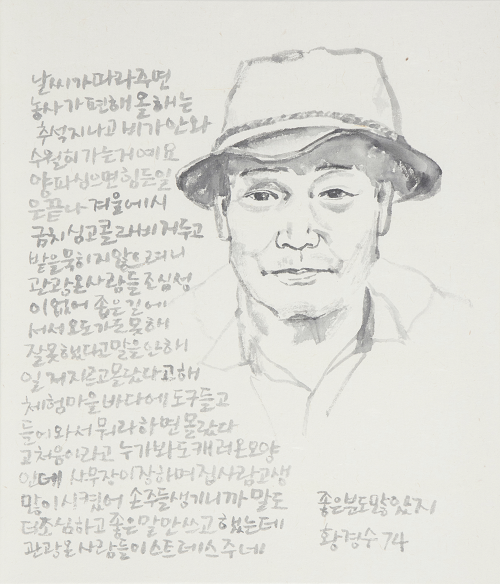 날씨가 따라주면
농사가 편해 올해는
추석지나고 비가 안와
수월히 가는거예요
양파 심으면 힘든일
은 끝나 겨울에 시
금치 심고 콜라비 거두고
밭을 묵히지 않으려니
관광온사람들 조심성
이 없어 좁은 길에
서서 오도가도 못해
잘못했다고 말을 안해
일 저지르고 몰랐다고 해
체험마을 바다에 도구들고
들어와서 뭐라하면 몰랐다
고 처음이라고 누가봐도 캐러온모양
인데 사무장이 잘하며 집사람 고생
많이 시켰어 손주들 생기니까 말도
더 조심하고 좋은 말만 쓰고 했는데
관광온 사람들이 스트레스 주네
좋은분도 많았지
황경수 74